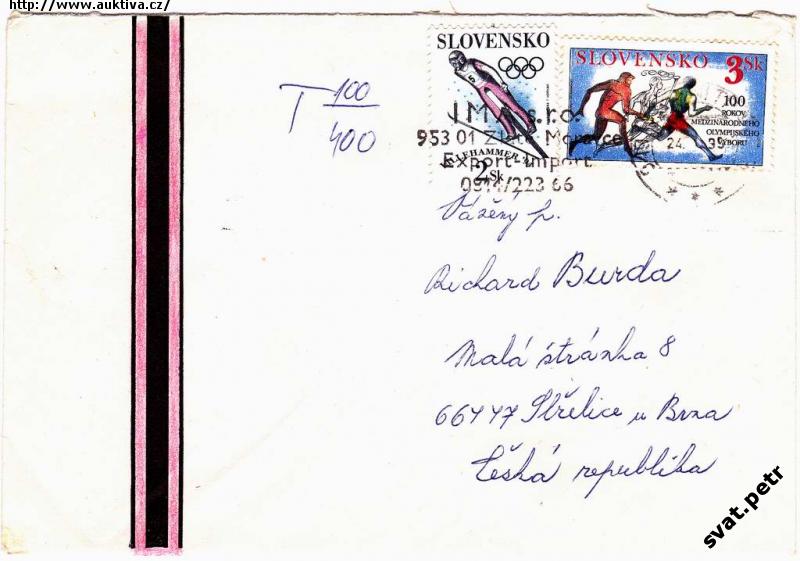 http://www.auktiva.cz/
T 100
400
SLOVENSKO
2 Sk
SLOVENSKO
3 Sk
100
ROKOV
MEDZINÁRODNÉHO
OLYMPIJSKÉHO
VÝBORU
s.r.o.
953 01 Zlaté Moravce
Export-import
0814/223 66
24.
Vážený p.
Richard Burda
Malá stránka 8
66447 Střelice u Brna
Česká republika
svat.petr